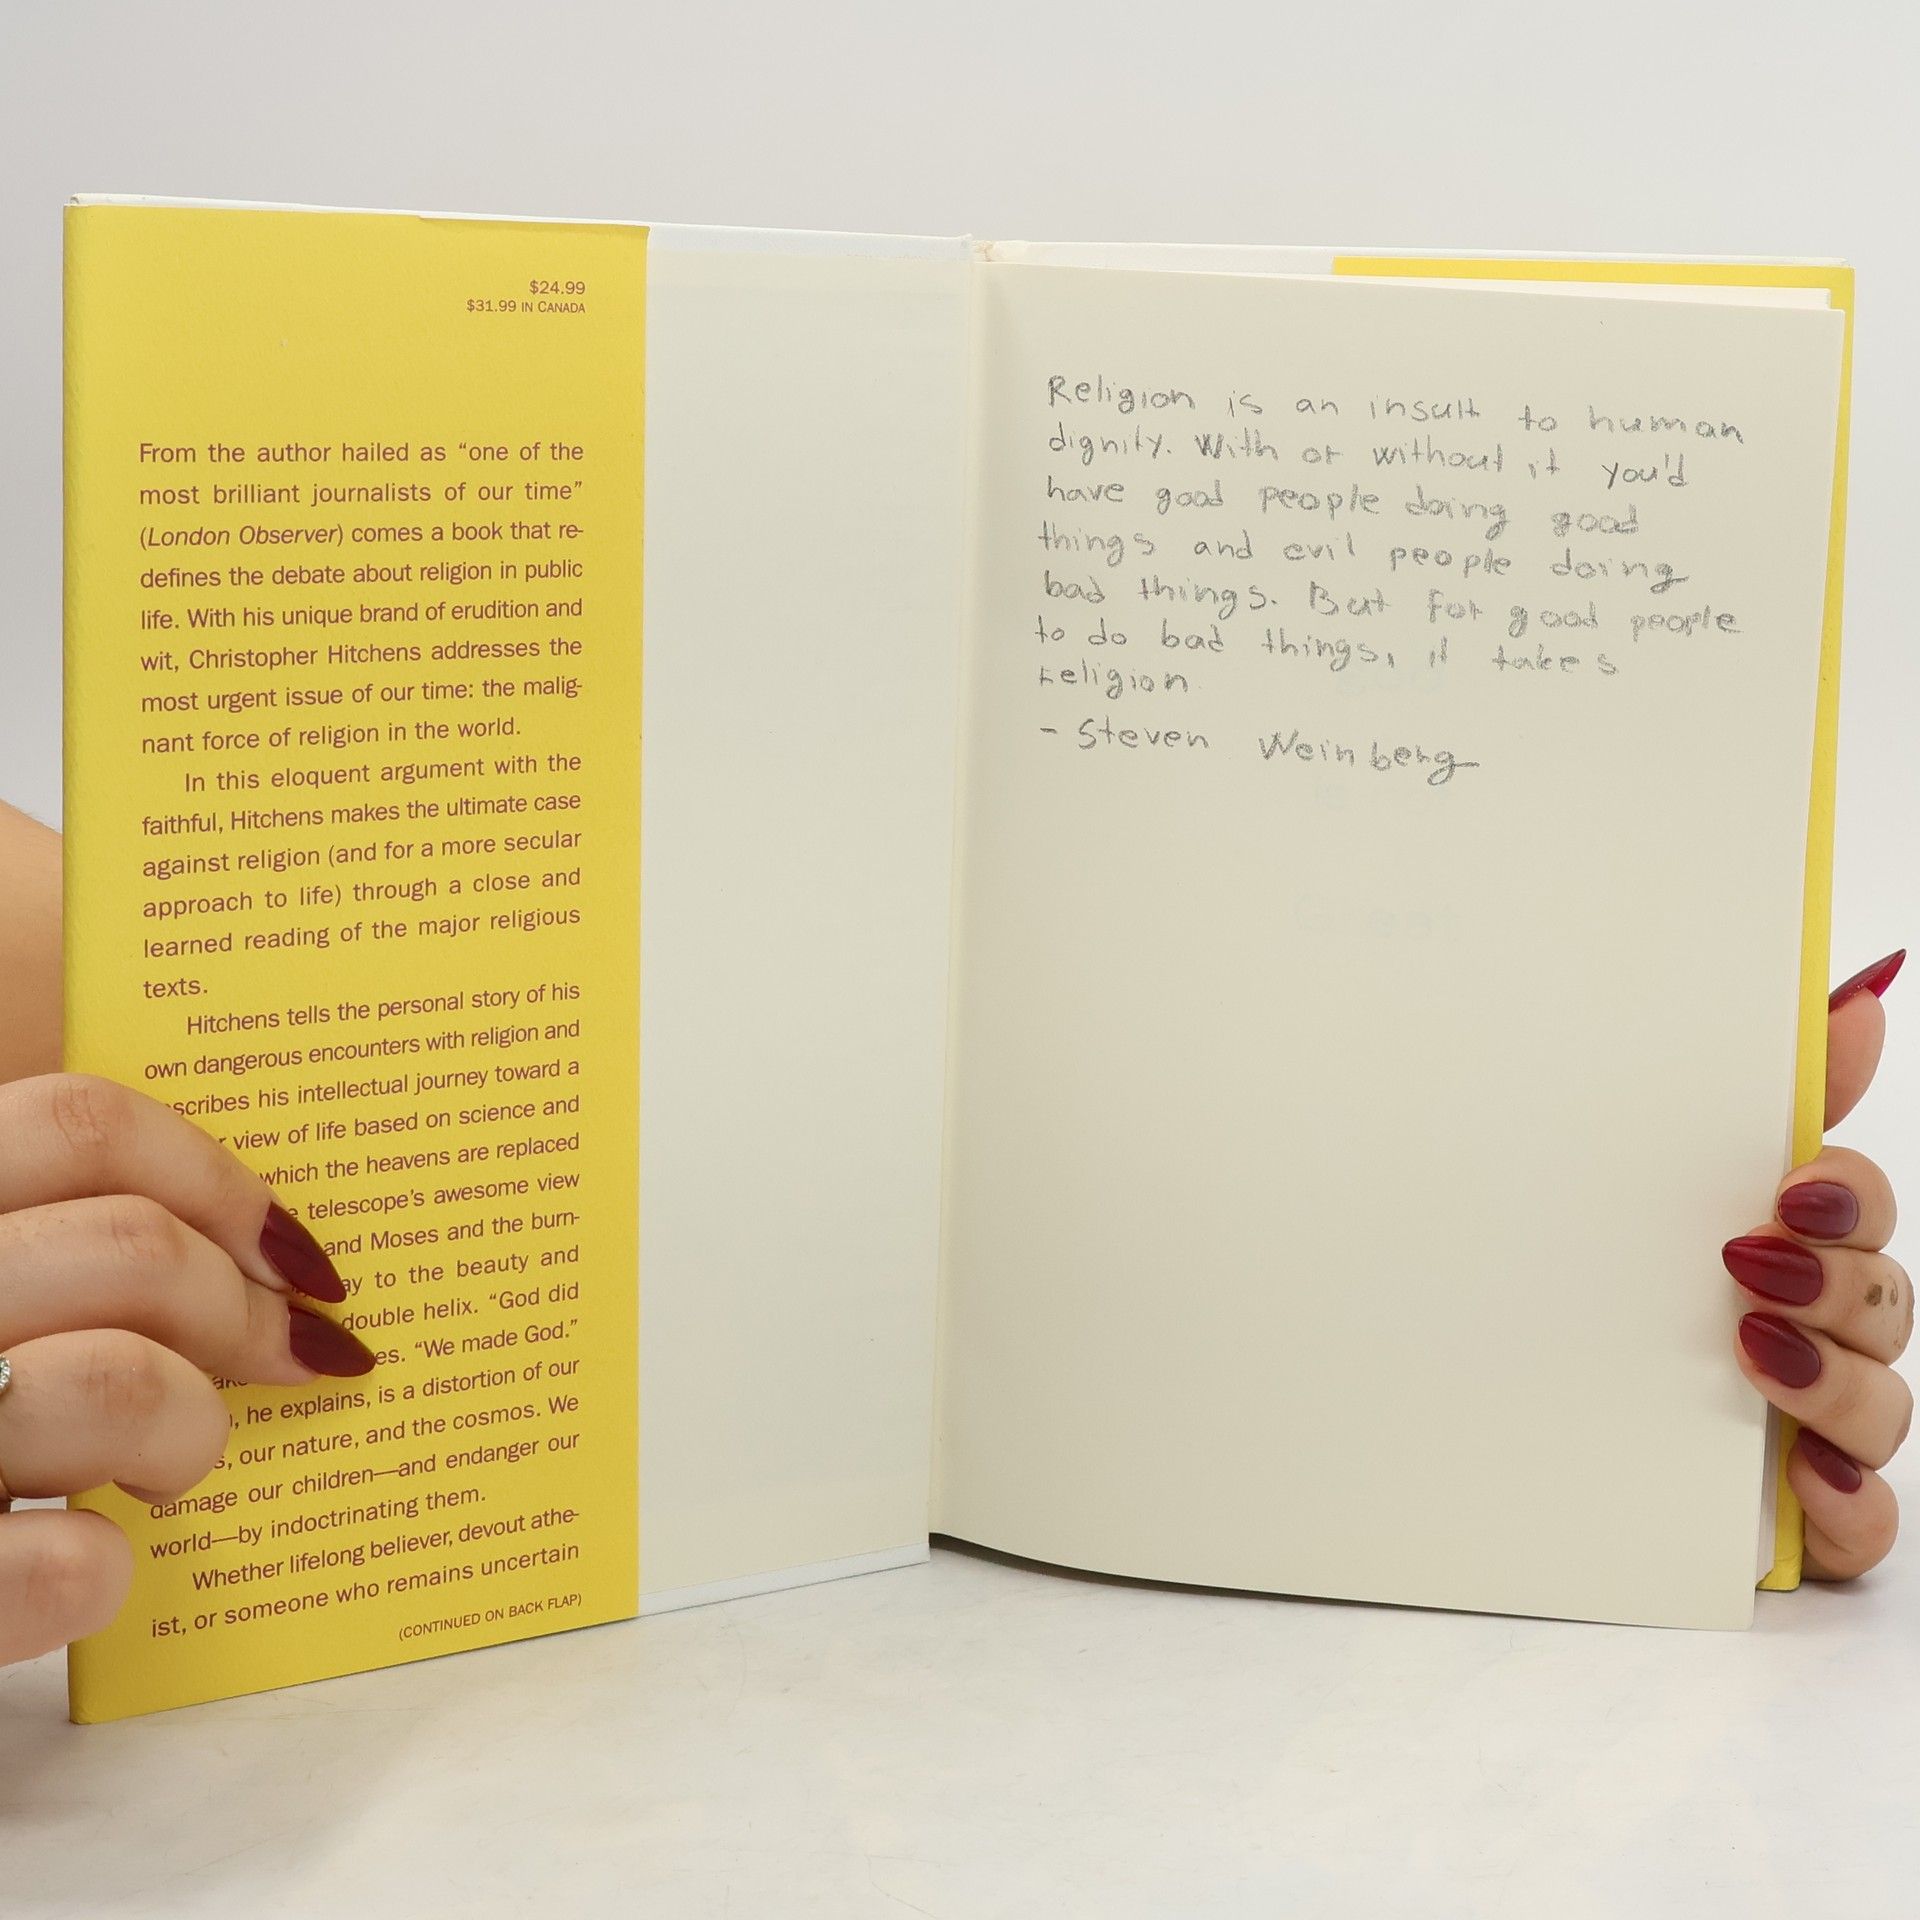 $24.99
$31.99 IN CANADA
From the author hailed as “one of the
most brilliant journalists of our time”
(London Observer) comes a book that re-
defines the debate about religion in public
life. With his unique brand of erudition and
wit, Christopher Hitchens addresses the
most urgent issue of our time: the malig-
nant force of religion in the world.
In this eloquent argument with the
faithful, Hitchens makes the ultimate case
against religion (and for a more secular
approach to life) through a close and
learned reading of the major religious
texts.
Hitchens tells the personal story of his
own dangerous encounters with religion and
his intellectual journey toward a
view of life based on science and
which the heavens are replaced
telescope’s awesome view
and Moses and the burn-
to the beauty and
double helix. “God did
“We made God.”
he explains, is a distortion of our
our nature, and the cosmos. We
damage our children—and endanger our
world—by indoctrinating them.
Whether lifelong believer, devout athe-
ist, or someone who remains uncertain
(CONTINUED ON BACK FLAP)
Religion is an insult to human
dignity. With or without it you'd
have good people doing good
things and evil people doing
bad things. But for good people
to do bad things, it takes
religion.
- Steven Weinberg